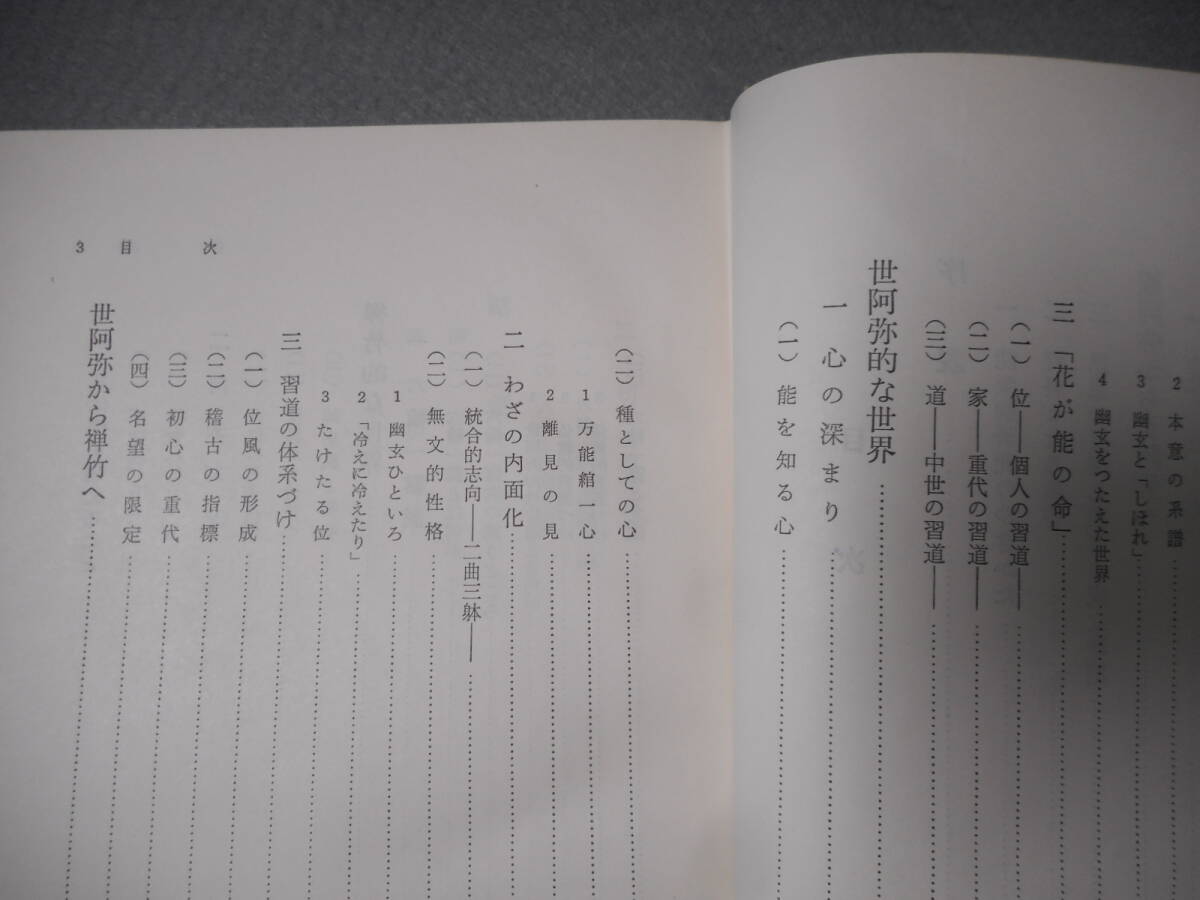 2 本意の系譜
3 幽玄と「しほれ」
4 幽玄をつたえた世界
三 「花が能の命」
(一) 位——個人の習道——
(二) 家——重代の習道——
(三) 道——中世の習道——
世阿弥的な世界
一 心の深まり
(一) 能を知る心
(二) 種としての心
1 万能綰一心
2 離見の見
二 わざの内面化
(一) 統合的志向——二曲三躰——
(二) 無文的性格
1 幽玄ひといろ
2 「冷えに冷えたり」
3 たけたる位
三 習道の体系づけ
(一) 位風の形成
(二) 稽古の指標
(三) 初心の重代
(四) 名望の限定
世阿弥から禅竹へ
3 目次